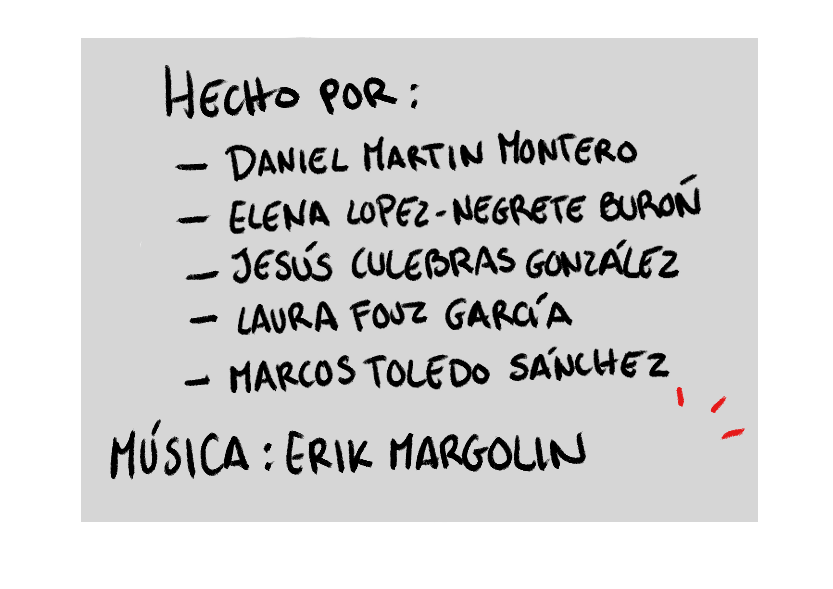 HECHO POR:
– DANIEL MARTIN MONTERO
– ELENA LOPEZ-NEGRETE BUROŃ
– JESÚS CULEBRAS GONZÁLEZ
– LAURA FOUZ GARCÍA
– MARCOS TOLEDO SÁNCHEZ
MÚSICA: ERIK MARGOLIN